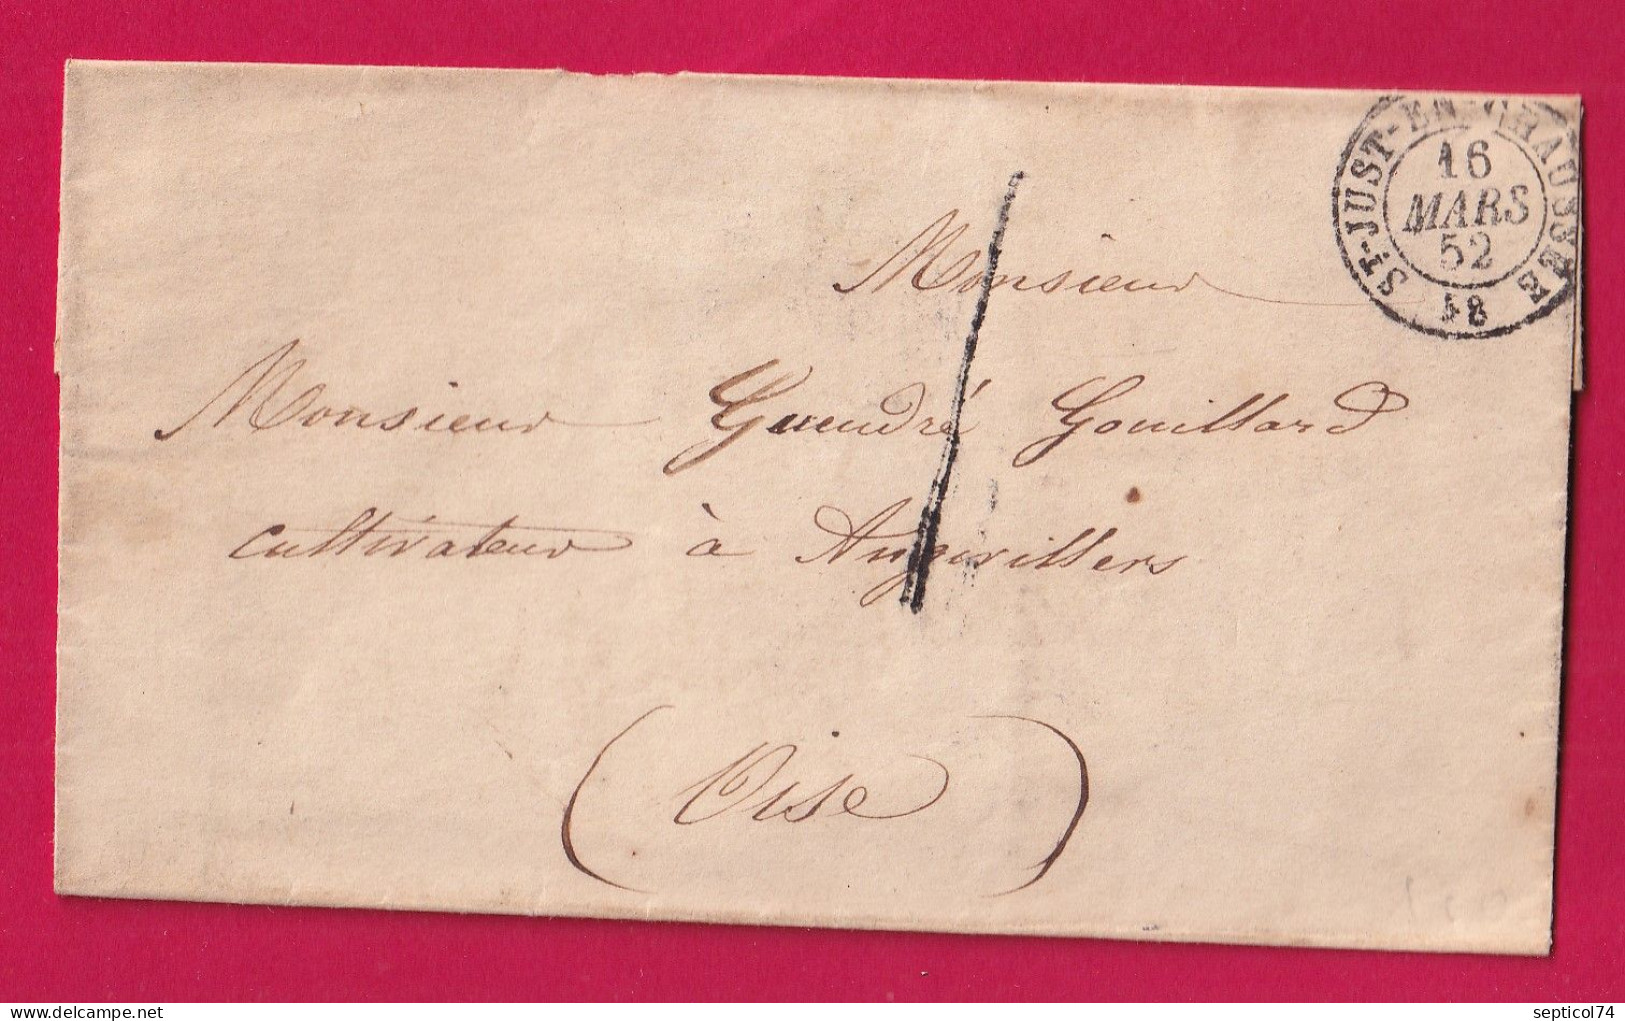 ST-JUST-EN-CHAUSSÉE
16
MARS
52
58
Monsieur
Monsieur Guendré Gouillard
cultivateur à Angivillers
(Oise)
septicol74